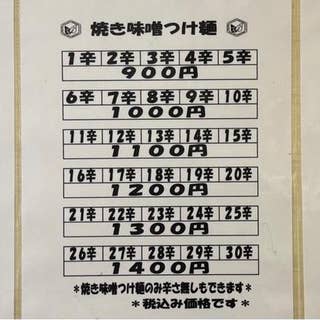 焼き味噌つけ麺
1辛 2辛 3辛 4辛 5辛
900円
6辛 7辛 8辛 9辛 10辛
1000円
11辛 12辛 13辛 14辛 15辛
1100円
16辛 17辛 18辛 19辛 20辛
1200円
21辛 22辛 23辛 24辛 25辛
1300円
26辛 27辛 28辛 29辛 30辛
1400円
*焼き味噌つけ麺のみ辛さ無しもできます*
*税込み価格です*